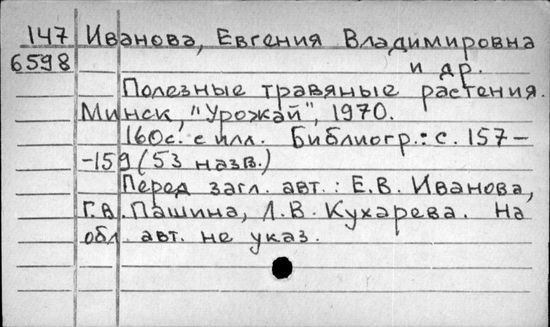 147 Иванова, Евгения Владимировна
6598 и др.
Полезные травяные растения.
Минск, "Урожай", 1970.
160с. с илл. Библиогр.: с. 157-
-159 (53 назв.)
Перед загл. авт.: Е.В. Иванова,
Г.В. Пашина, Л.В. Кухарева. На
обл. авт. не указ.